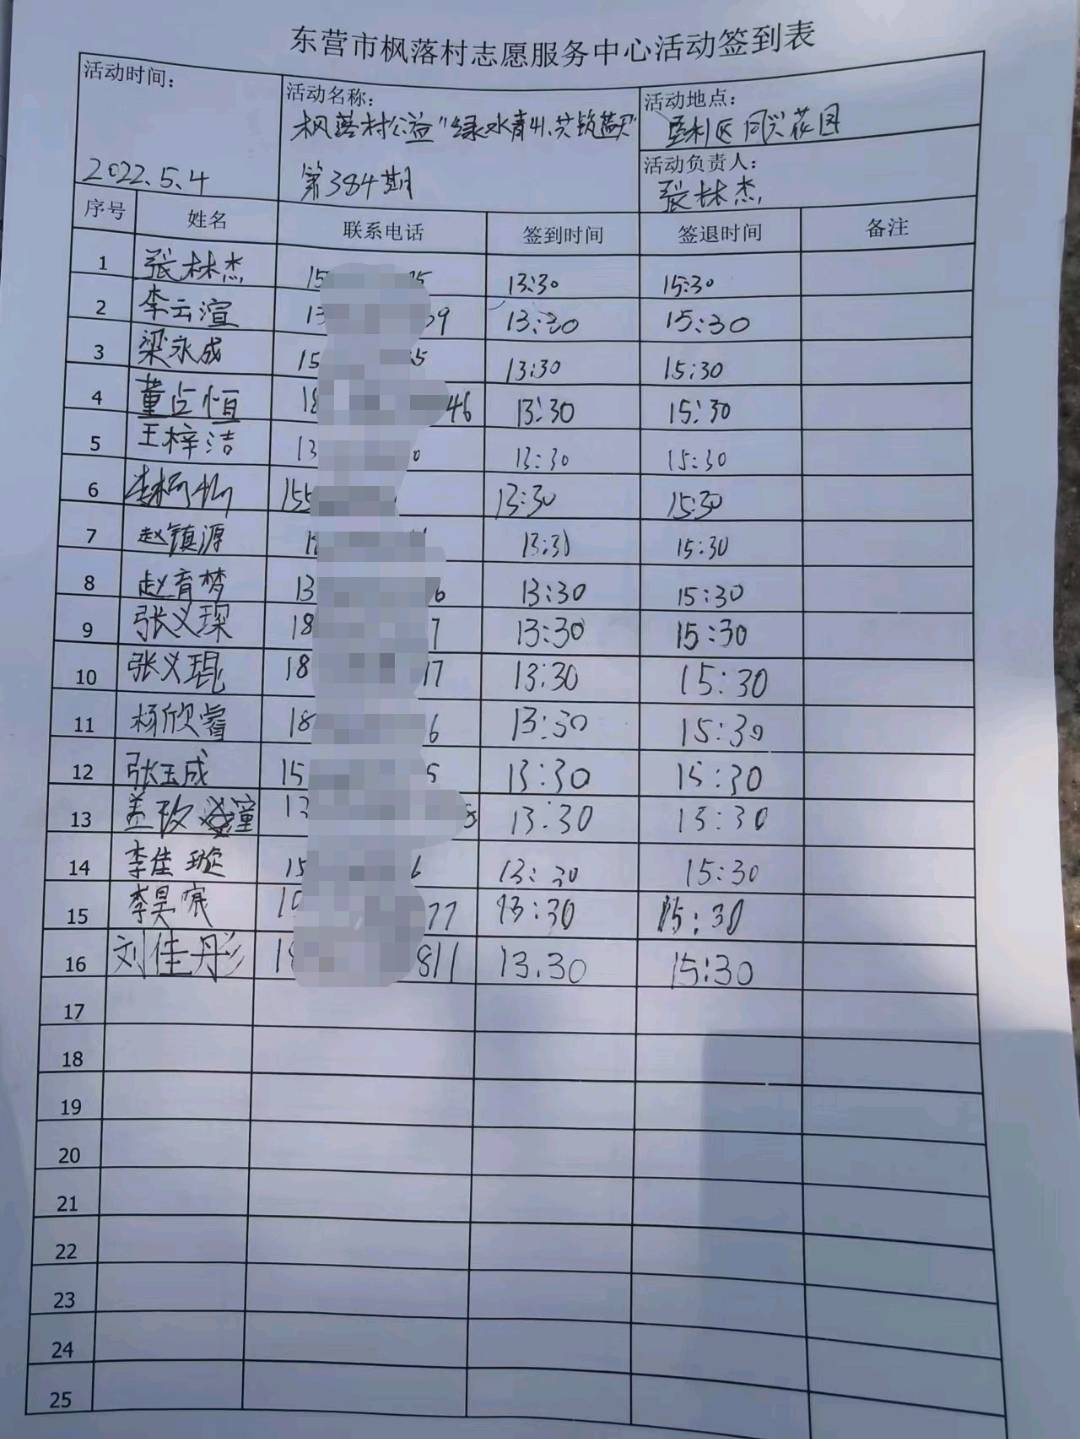 东营市枫落村志愿服务中心活动签到表
活动时间： 2022.5.4
活动名称： 枫落村公益"绿水青山、共筑蓝天"
第384期
活动地点： 垦利区同兴花园
活动负责人： 张林杰
序号 姓名 联系电话 签到时间 签退时间 备注
1 张林杰 15 5 13:30 15:30
2 李云渲 13 39 13:30 15:30
3 梁永成 15 5 13:30 15:30
4 董占恒 18 46 13:30 15:30
5 王梓洁 13 0 13:30 15:30
6 155 13:30 15:30
7 赵镇源 1 13:30 15:30
8 赵育梦 13 6 13:30 15:30
9 张义琛 18 7 13:30 15:30
10 张义琨 18 17 13:30 15:30
11 杨欣睿 18 6 13:30 15:30
12 张玉成 15 5 13:30 15:30
13 盖 潼 13 13:30 13:30
14 李佳璇 15 6 13:30 15:30
15 李昊宸 1 77 13:30 15:30
16 刘佳彤 18 811 13.30 15:30
17
18
19
20
21
22
23
24
25